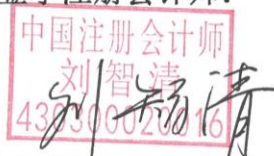 中国注册会计师
刘智清
430300020016
刘智清